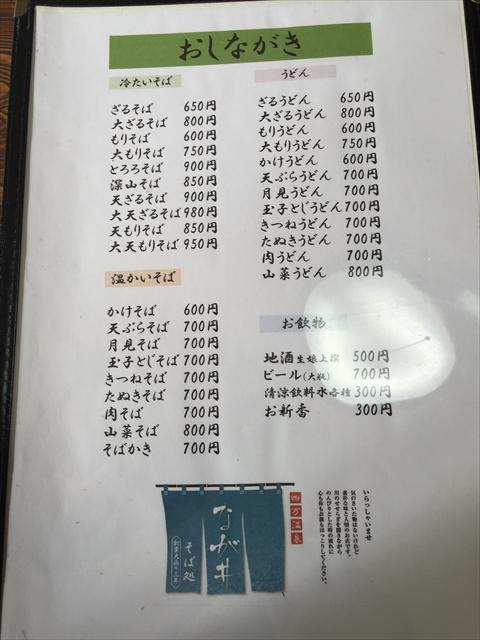 おしながき
冷たいそば
ざるそば 650円
大ざるそば 800円
もりそば 600円
大もりそば 750円
とろろそば 900円
深山そば 850円
天ざるそば 900円
大天ざるそば 980円
天もりそば 850円
大天もりそば 950円
温かいそば
かけそば 600円
天ぷらそば 700円
月見そば 700円
玉子とじそば 700円
きつねそば 700円
たぬきそば 700円
肉そば 700円
山菜そば 800円
そばかき 700円
うどん
ざるうどん 650円
大ざるうどん 800円
もりうどん 600円
大もりうどん 750円
かけうどん 600円
天ぷらうどん 700円
月見うどん 700円
玉子とじうどん 700円
きつねうどん 700円
たぬきうどん 700円
肉うどん 700円
山菜うどん 800円
お飲物
地酒生娘上撰 500円
ビール(大瓶) 700円
清涼飲料水各種 300円
お新香 300円
四万温泉
なが井
そば処
創業大正十三年
いらっしゃいませ
気のきいた物はないけれど
素朴な味と人情のお店です。
川のせせらぎを聞きながら
のんびりとした時の流れに
心も体もお腹もほっこりしてください。